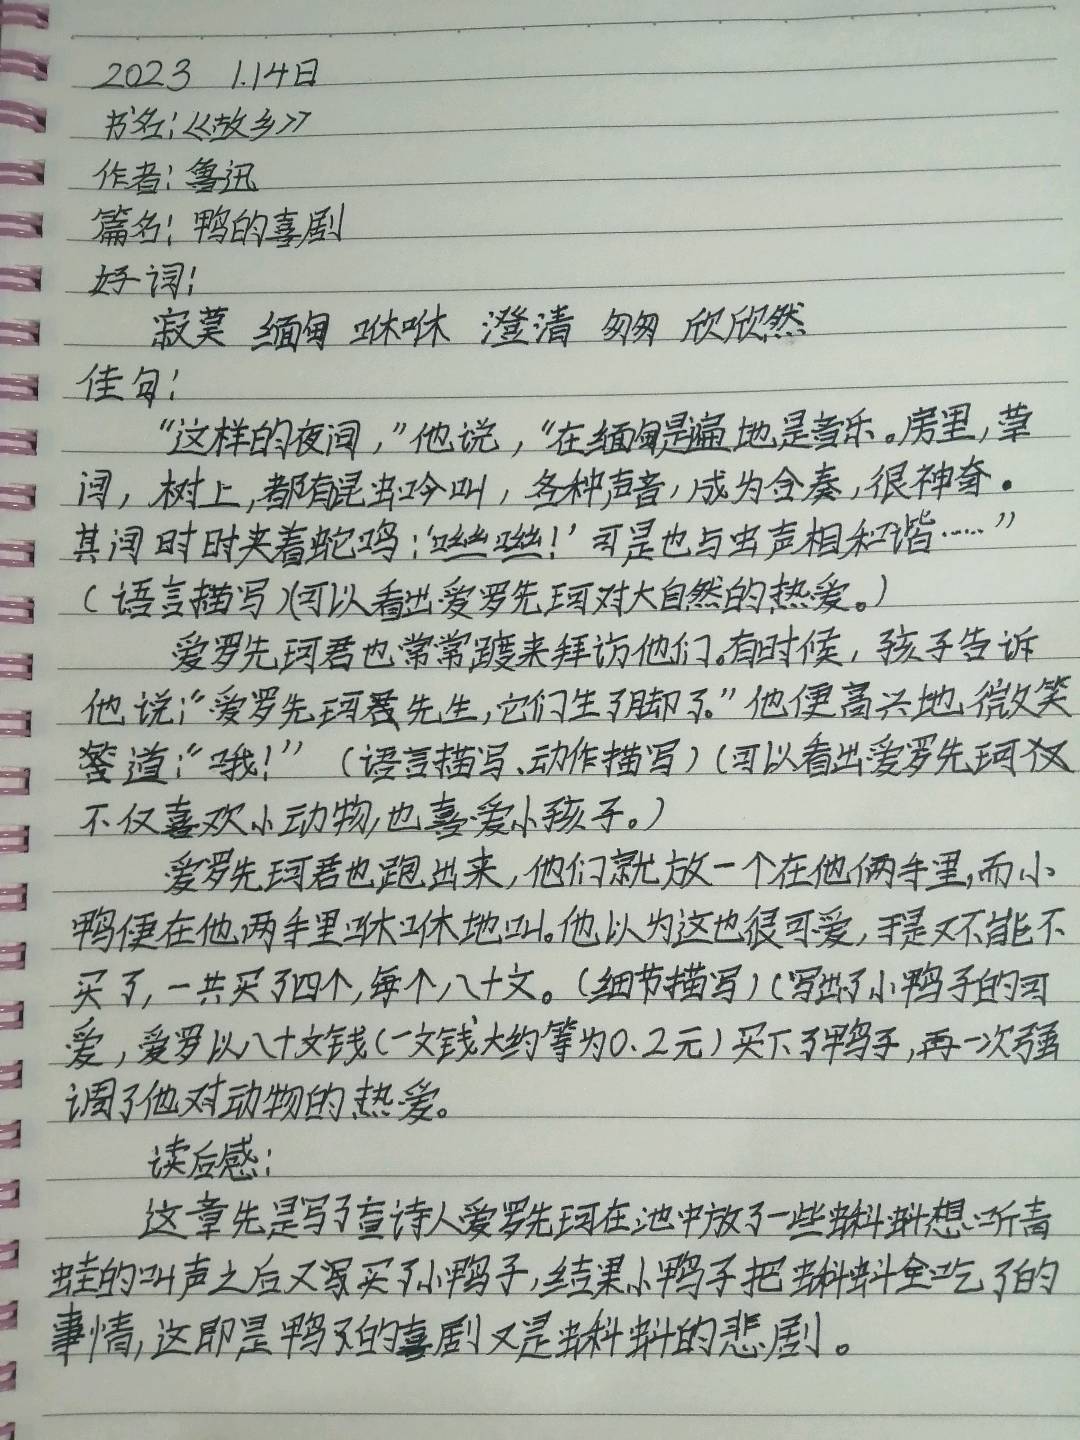 2023 1.14日
书名:《故乡》
作者:鲁迅
篇名:鸭的喜剧
好词:
寂莫 缅甸 咻咻 澄清 匆匆 欣欣然
佳句:
“这样的夜间，”他说，“在缅甸是遍地是音乐。房里，草
间，树上，都有昆虫吟叫，各种声音，成为合奏，很神奇。
其间时时夹着蛇鸣:‘咝咝!’可是也与虫声相和谐……”
(语言描写)(可以看出爱罗先珂对大自然的热爱。)
爱罗先珂君也常常踱来拜访他们。有时候，孩子告诉
他说:“爱罗先珂先生，它们生了脚了。”他便高兴地微笑
答道:“哦!”(语言描写、动作描写)(可以看出爱罗先珂
不仅喜欢小动物，也喜爱小孩子。)
爱罗先珂君也跑出来，他们就放一个在他俩手里，而小
鸭便在他两手里咻咻地叫。他以为这也很可爱，于是又不能不
买了，一共买了四个，每个八十文。(细节描写)(写出了小鸭子的可
爱，爱罗以八十文钱(一文钱大约等为0.2元)买下了鸭子，再一次强
调了他对动物的热爱。
读后感:
这章先是写了盲诗人爱罗先珂在池中放了一些蝌蚪想听青
蛙的叫声之后又买了小鸭子，结果小鸭子把蝌蚪全吃了的
事情，这即是鸭子的喜剧又是蝌蚪的悲剧。